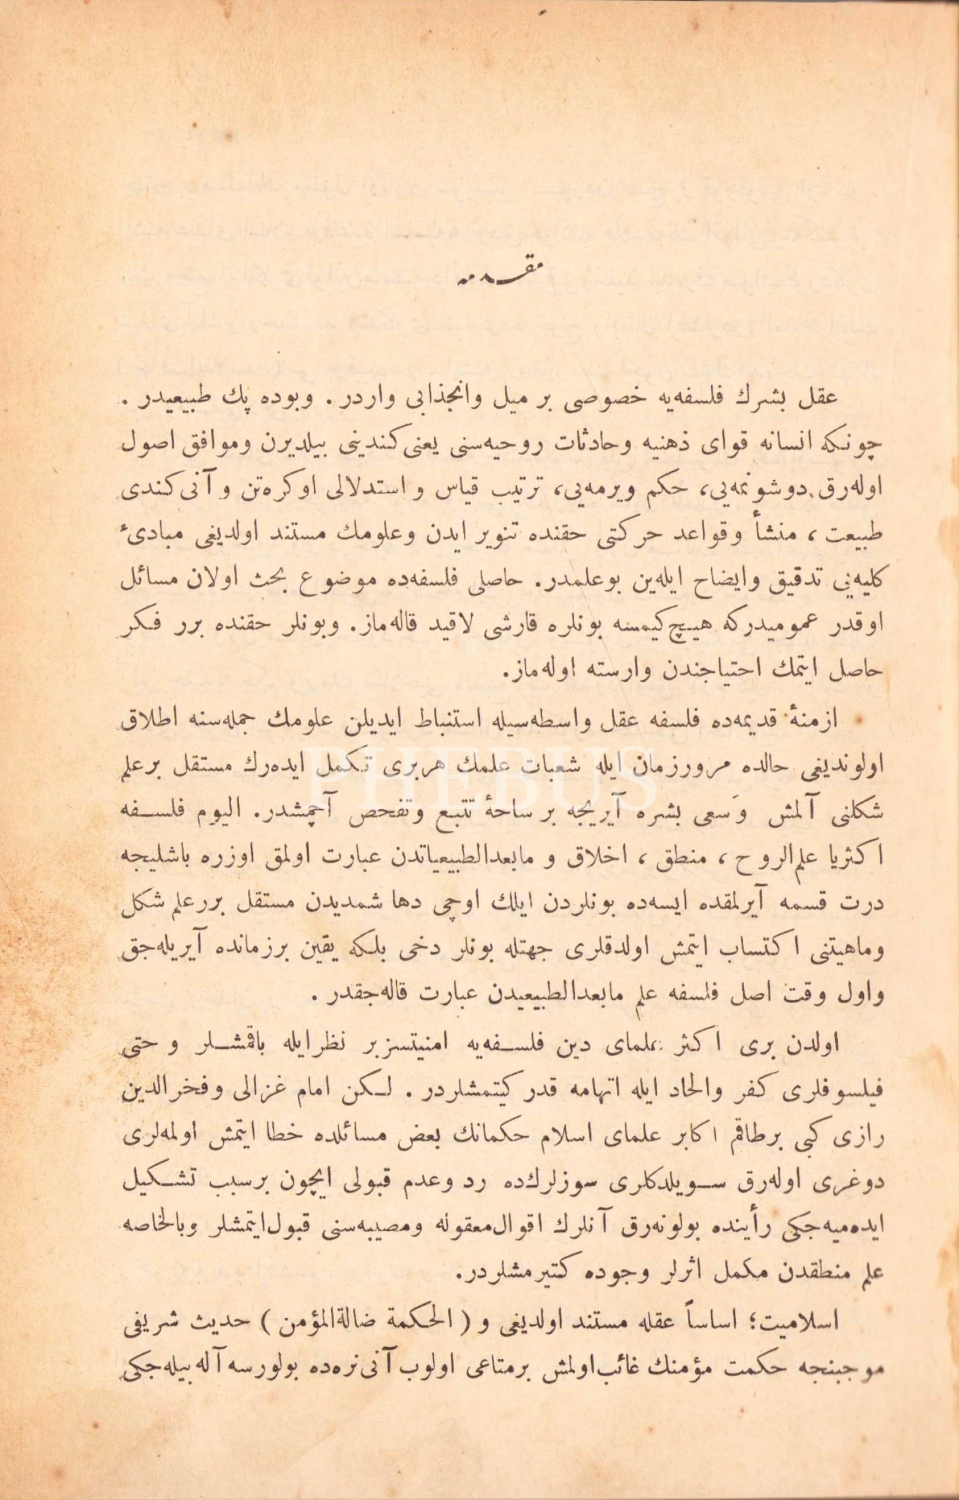 مقدمه
عقل بشرك فلسفه‌يه خصوصى بر ميل وانجذابى واردر . وبوده پك طبيعيدر .
چونكه انسانه قواى ذهنيه وحادثات روحيه‌سنى يعنى كندينى بيلديرن وموافق اصول
اوله‌رق دوشونمه‌يى، حكم ويرمه‌يى، ترتيب قياس و استدلالى اوكره‌تن و آنى كندى
طبيعت ، منشأ وقواعد حركتى حقنده تنوير ايدن وعلومك مستند اولديغى مبادئ
كليه‌يى تدقيق وايضاح ايله‌ين بوعلمدر. حاصلى فلسفه‌ده موضوع بحث اولان مسائل
اوقدر عموميدركه هيچ كيمسه بونلره قارشى لاقيد قاله‌ماز. وبونلر حقنده برر فكر
حاصل ايتمك احتياجندن وارسته اوله‌ماز.
ازمنۀ قديمه‌ده فلسفه عقل واسطه‌سيله استنباط ايديلن علومك جمله‌سنه اطلاق
اولونديغى حالده مرورزمان ايله شعبات علمك هربرى تكمل ايده‌رك مستقل برعلم
شكلنى آلمش وسعى بشره آيريجه بر ساحۀ تتبع وتفحص آچمشدر. اليوم فلسفه
اكثريا علم‌الروح ، منطق ، اخلاق و مابعدالطبيعياتدن عبارت اولمق اوزره باشليجه
درت قسمه آيرلمقده ايسه‌ده بونلردن ايلك اوچى دها شمديدن مستقل بررعلم شكل
وماهيتنى اكتساب ايتمش اولدقلرى جهتله بونلر دخى بلكه يقين برزمانده آيريله‌جق
واول وقت اصل فلسفه علم مابعدالطبيعيدن عبارت قاله‌جقدر .
اولدن برى اكثر علماى دين فلسفه‌يه امنيتسزبر نظرايله باقمشلر و حتى
فيلسوفلرى كفر والحاد ايله اتهامه قدر كيتمشلردر . لكن امام غزالى وفخرالدين
رازى كبى برطاقم اكابر علماى اسلام حكمانك بعض مسائلده خطا ايتمش اولمه‌لرى
دوغرى اوله‌رق سويلدكلرى سوزلرك‌ده رد وعدم قبولى ايچون برسبب تشكيل
ايده‌ميه‌جكى رأينده بولونه‌رق آنلرك اقوال معقوله ومصيبه‌سنى قبول ايتمشلر وبالخاصه
علم منطقدن مكمل اثرلر وجوده كتيرمشلردر.
اسلاميت؛ اساساً عقله مستند اولديغى و ( الحكمة ضالةالمؤمن ) حديث شريفى
موجبنجه حكمت مؤمنك غائب‌اولمش برمتاعى اولوب آنى نره‌ده بولورسه آله بيله‌جكى
PHEBUS